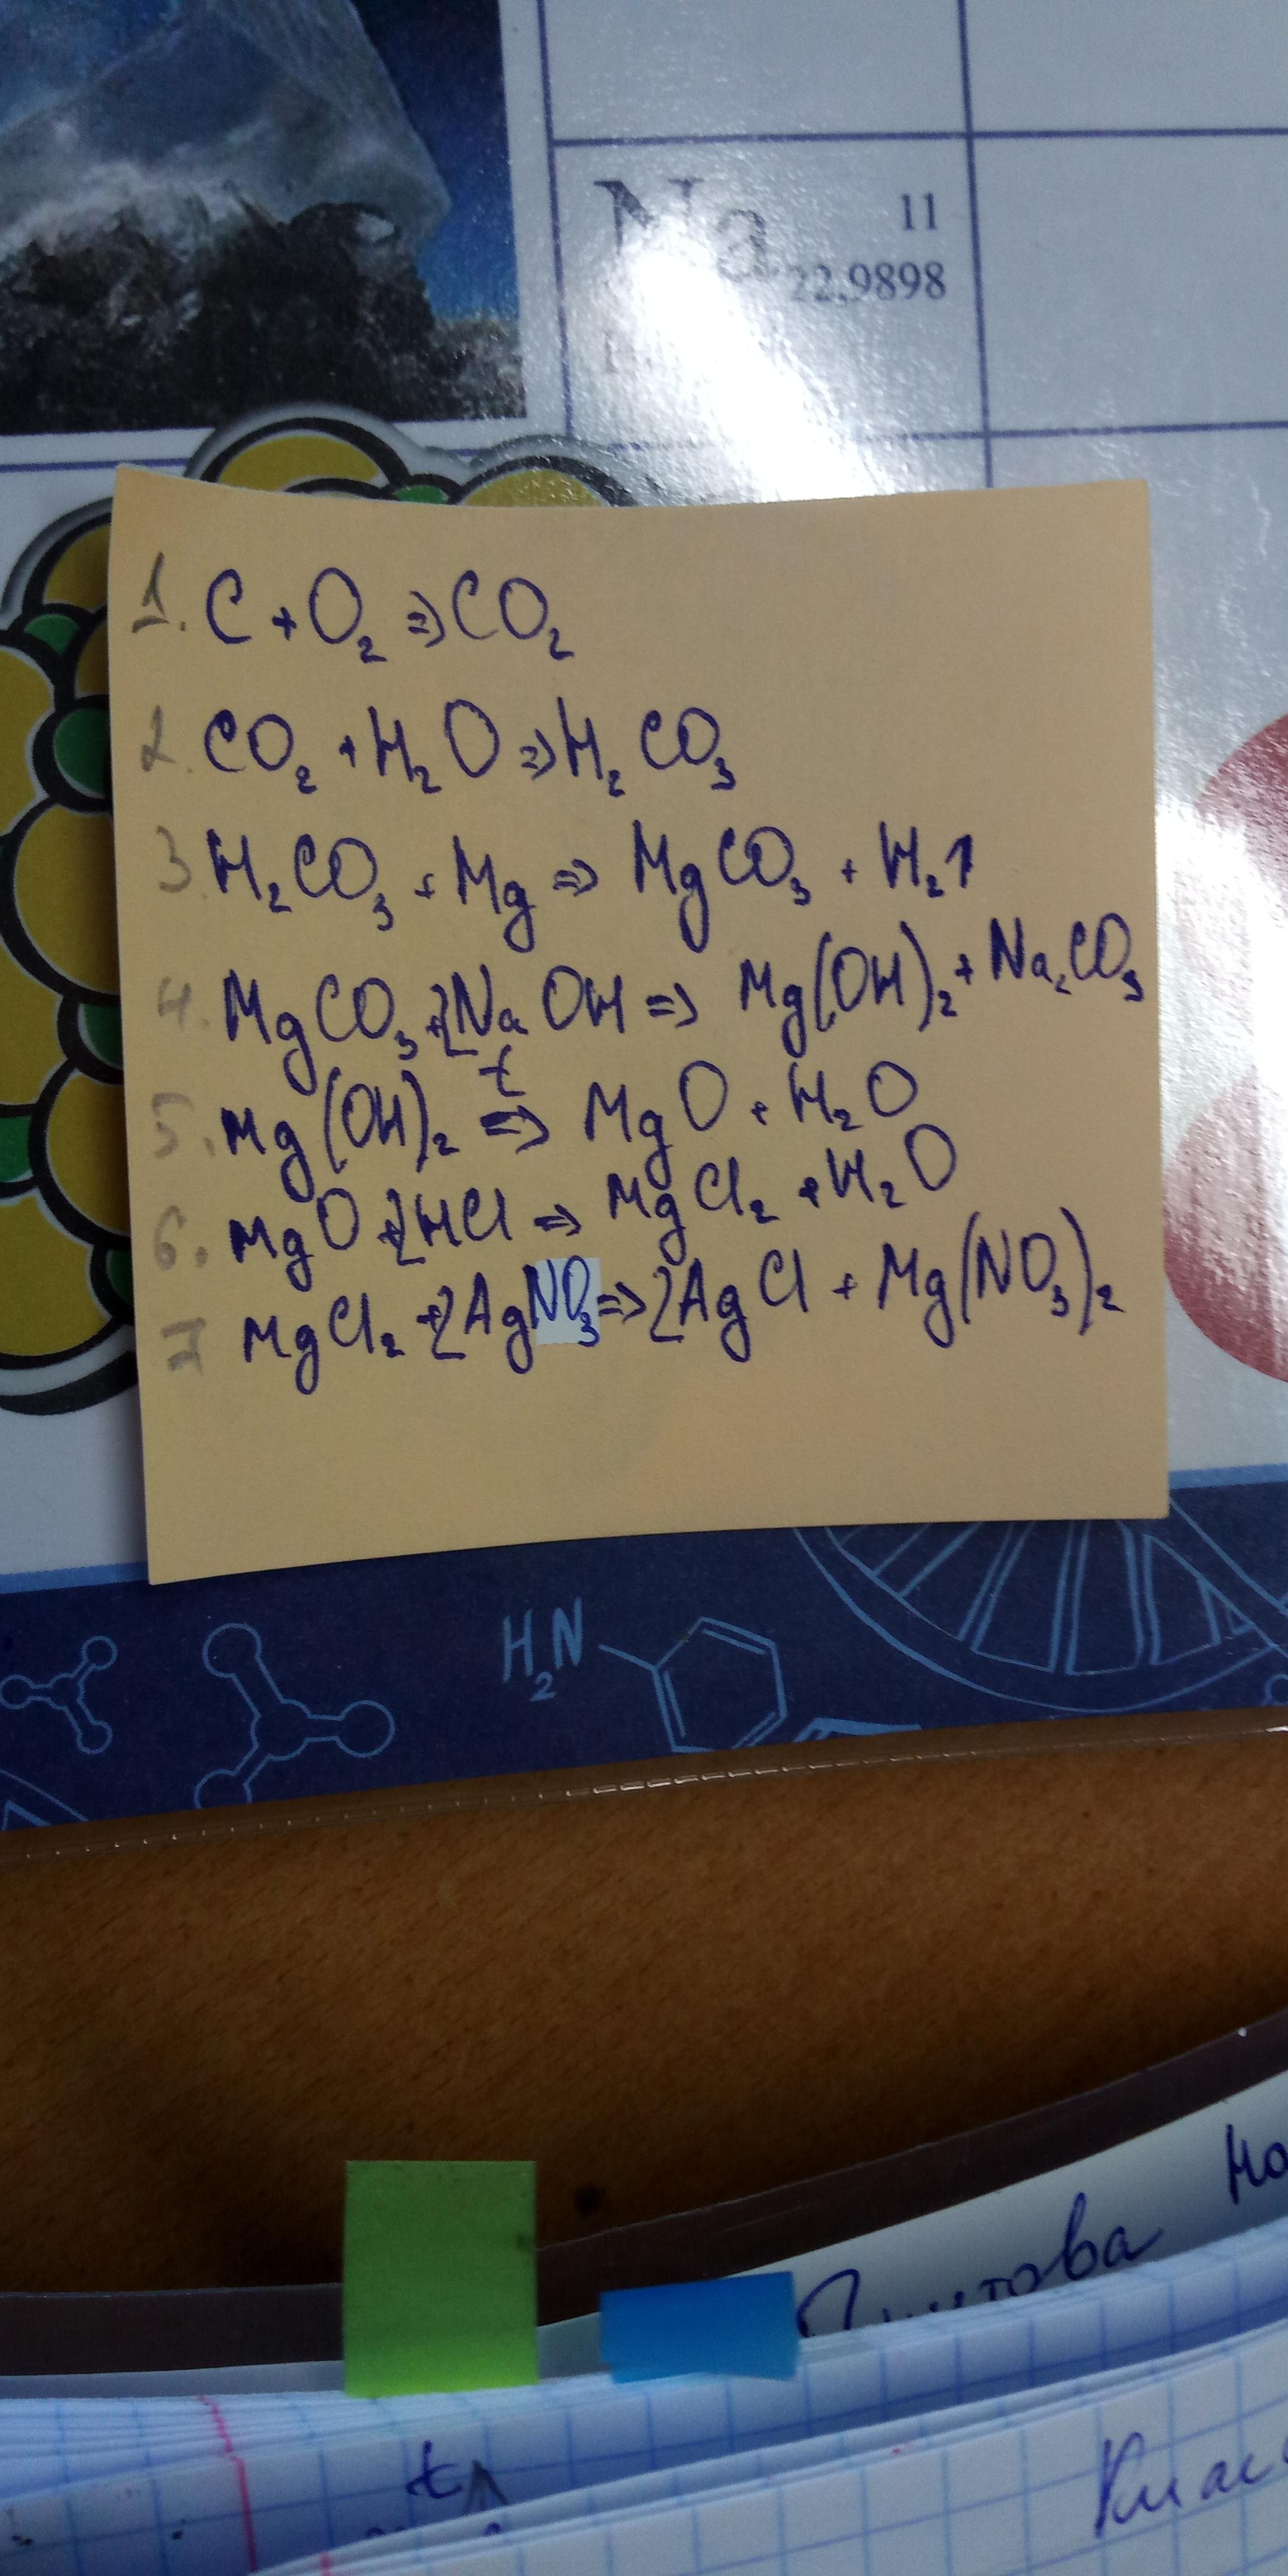 Na
11
22,9898
1. C + O₂ ⇒ CO₂
2. CO₂ + H₂O ⇒ H₂CO₃
3. H₂CO₃ + Mg ⇒ MgCO₃ + H₂↑
4. MgCO₃ + 2NaOH ⇒ Mg(OH)₂ + Na₂CO₃
t
5. Mg(OH)₂ ⇒ MgO + H₂O
6. MgO + 2HCl ⇒ MgCl₂ + H₂O
7 MgCl₂ + 2AgNO₃ ⇒ 2AgCl + Mg(NO₃)₂
H₂N
t